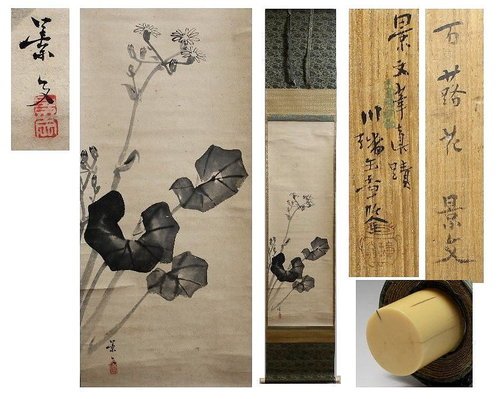 景文
景文
景文筆真蹟
川端玉章
石蕗花 景文